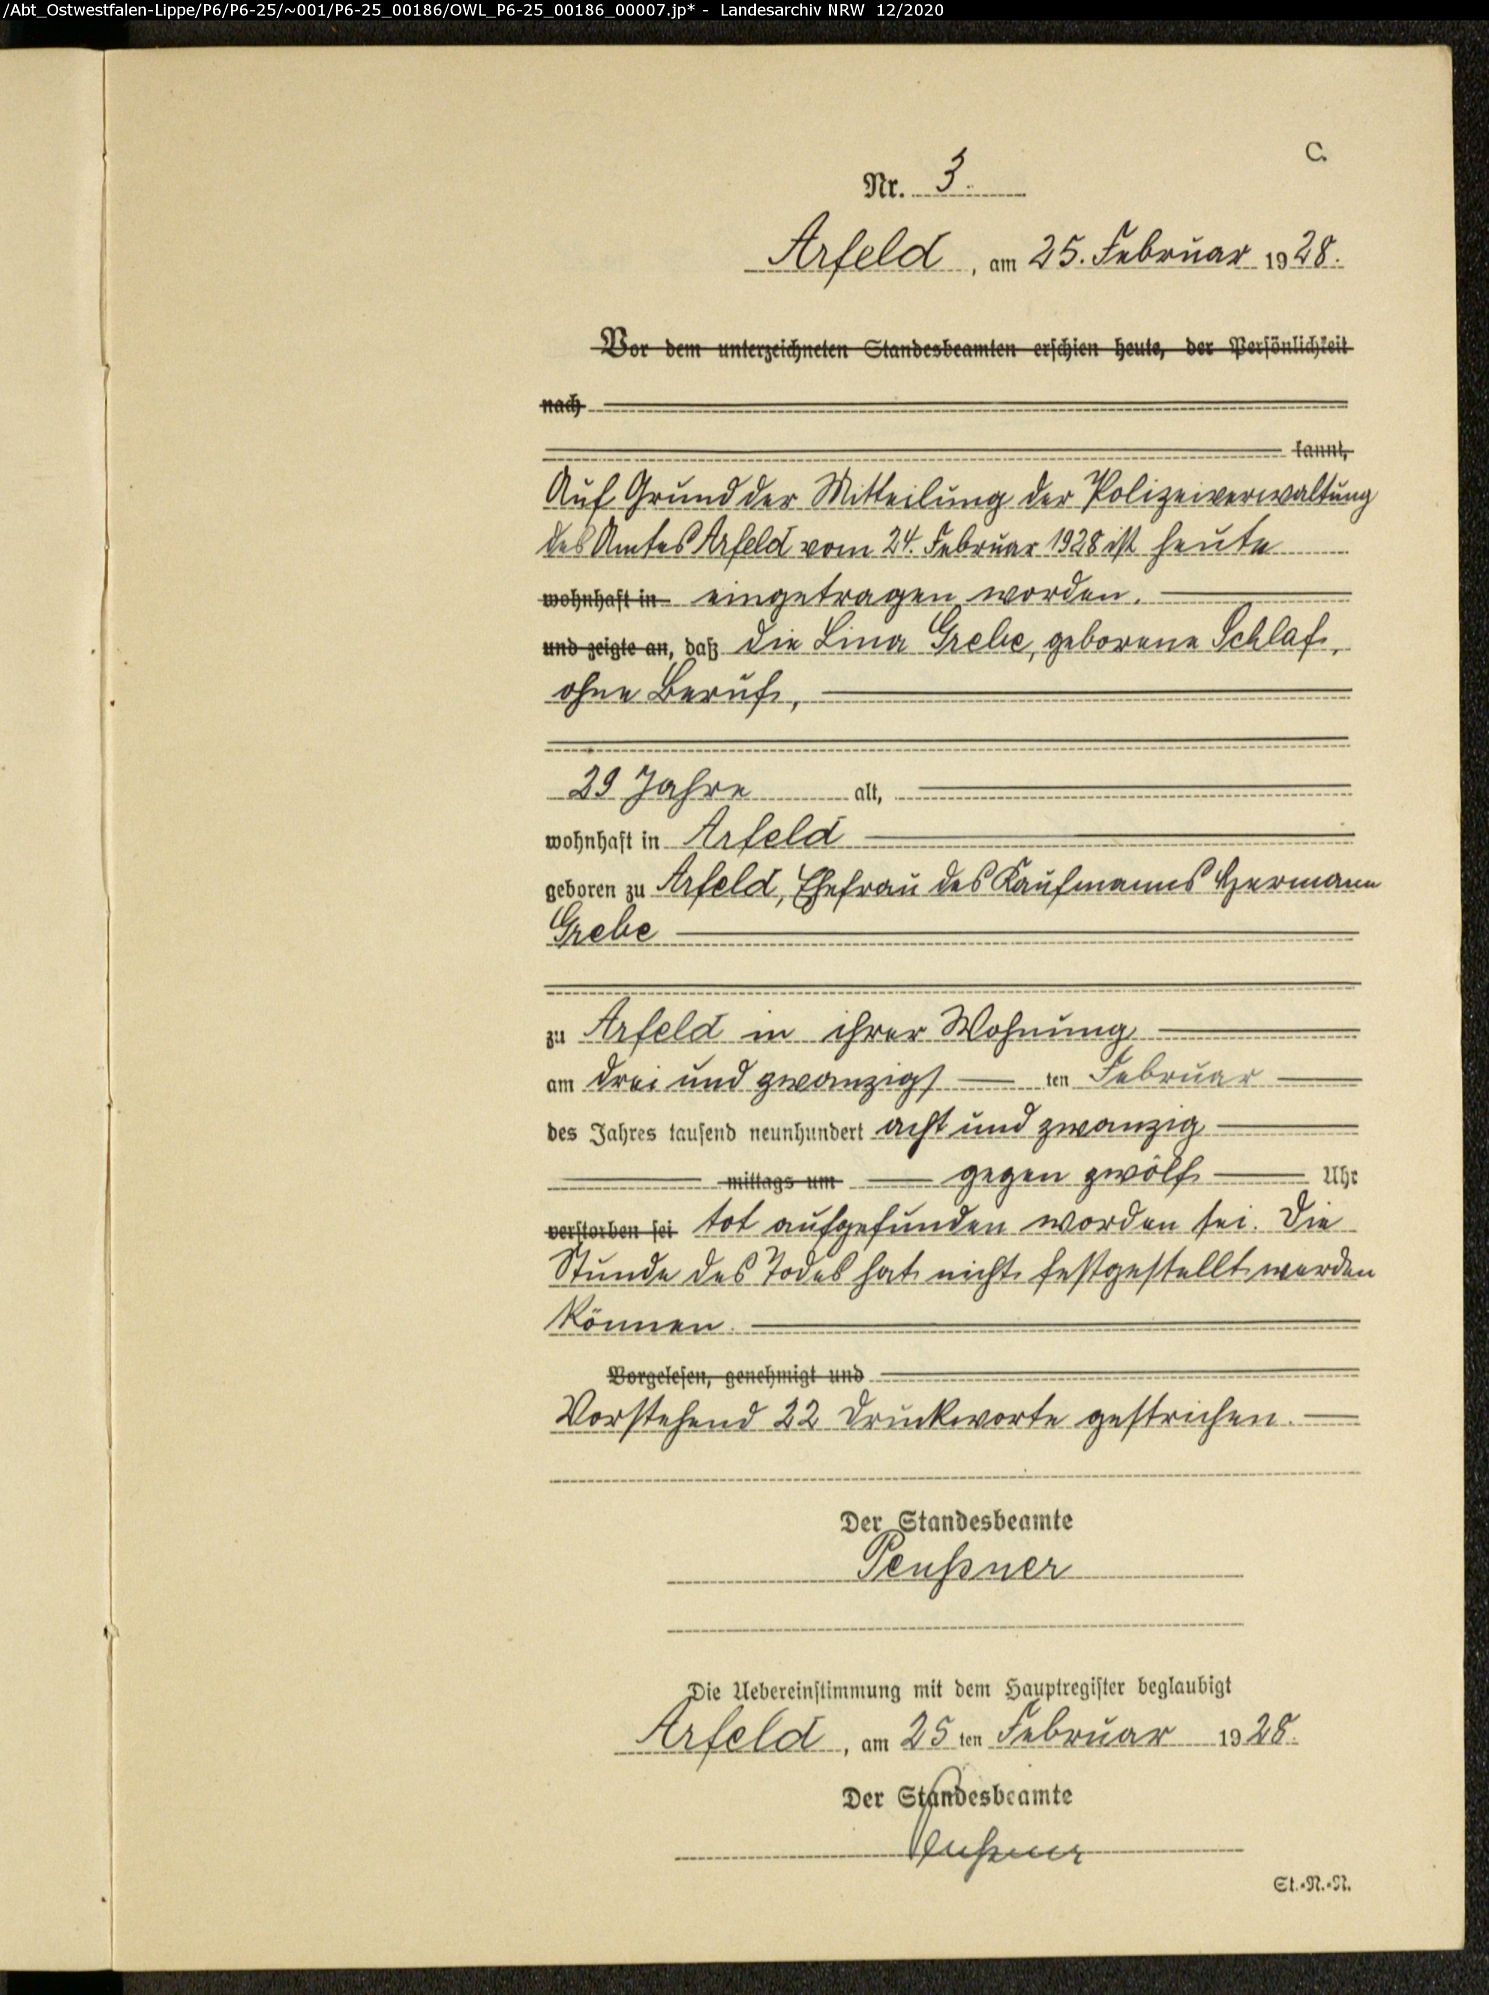 /Abt_Ostwestfalen-Lippe/P6/P6-25/~001/P6-25_00186/OWL_P6-25_00186_00007.jp* - Landesarchiv NRW 12/2020
C.
Nr. 3.
Arfeld, am 25. Februar 1928.
Vor dem unterzeichneten Standesbeamten erschien heute, der Persönlichkeit
nach
kannt,
Auf Grund der Mitteilung der Polizeiverwaltung
des Amtes Arfeld vom 24. Februar 1928 ist heute
wohnhaft in eingetragen worden.
und zeigte an, daß die Lina Grebe, geborene Schlaf,
ohne Beruf,
29 Jahre alt,
wohnhaft in Arfeld
geboren zu Arfeld, Ehefrau des Kaufmanns Hermann
Grebe
zu Arfeld in ihrer Wohnung
am drei und zwanzigsten Februar
des Jahres tausend neunhundert acht und zwanzig
mittags um gegen zwölf Uhr
verstorben sei tot aufgefunden worden sei. Die
Stunde des Todes hat nicht festgestellt werden
können.
Vorgelesen, genehmigt und
Vorstehend 22 Druckworte gestrichen.
Der Standesbeamte
Peußner
Die Uebereinstimmung mit dem Hauptregister beglaubigt
Arfeld, am 25 ten Februar 1928.
Der Standesbeamte
Peußner
St.-N.-N.